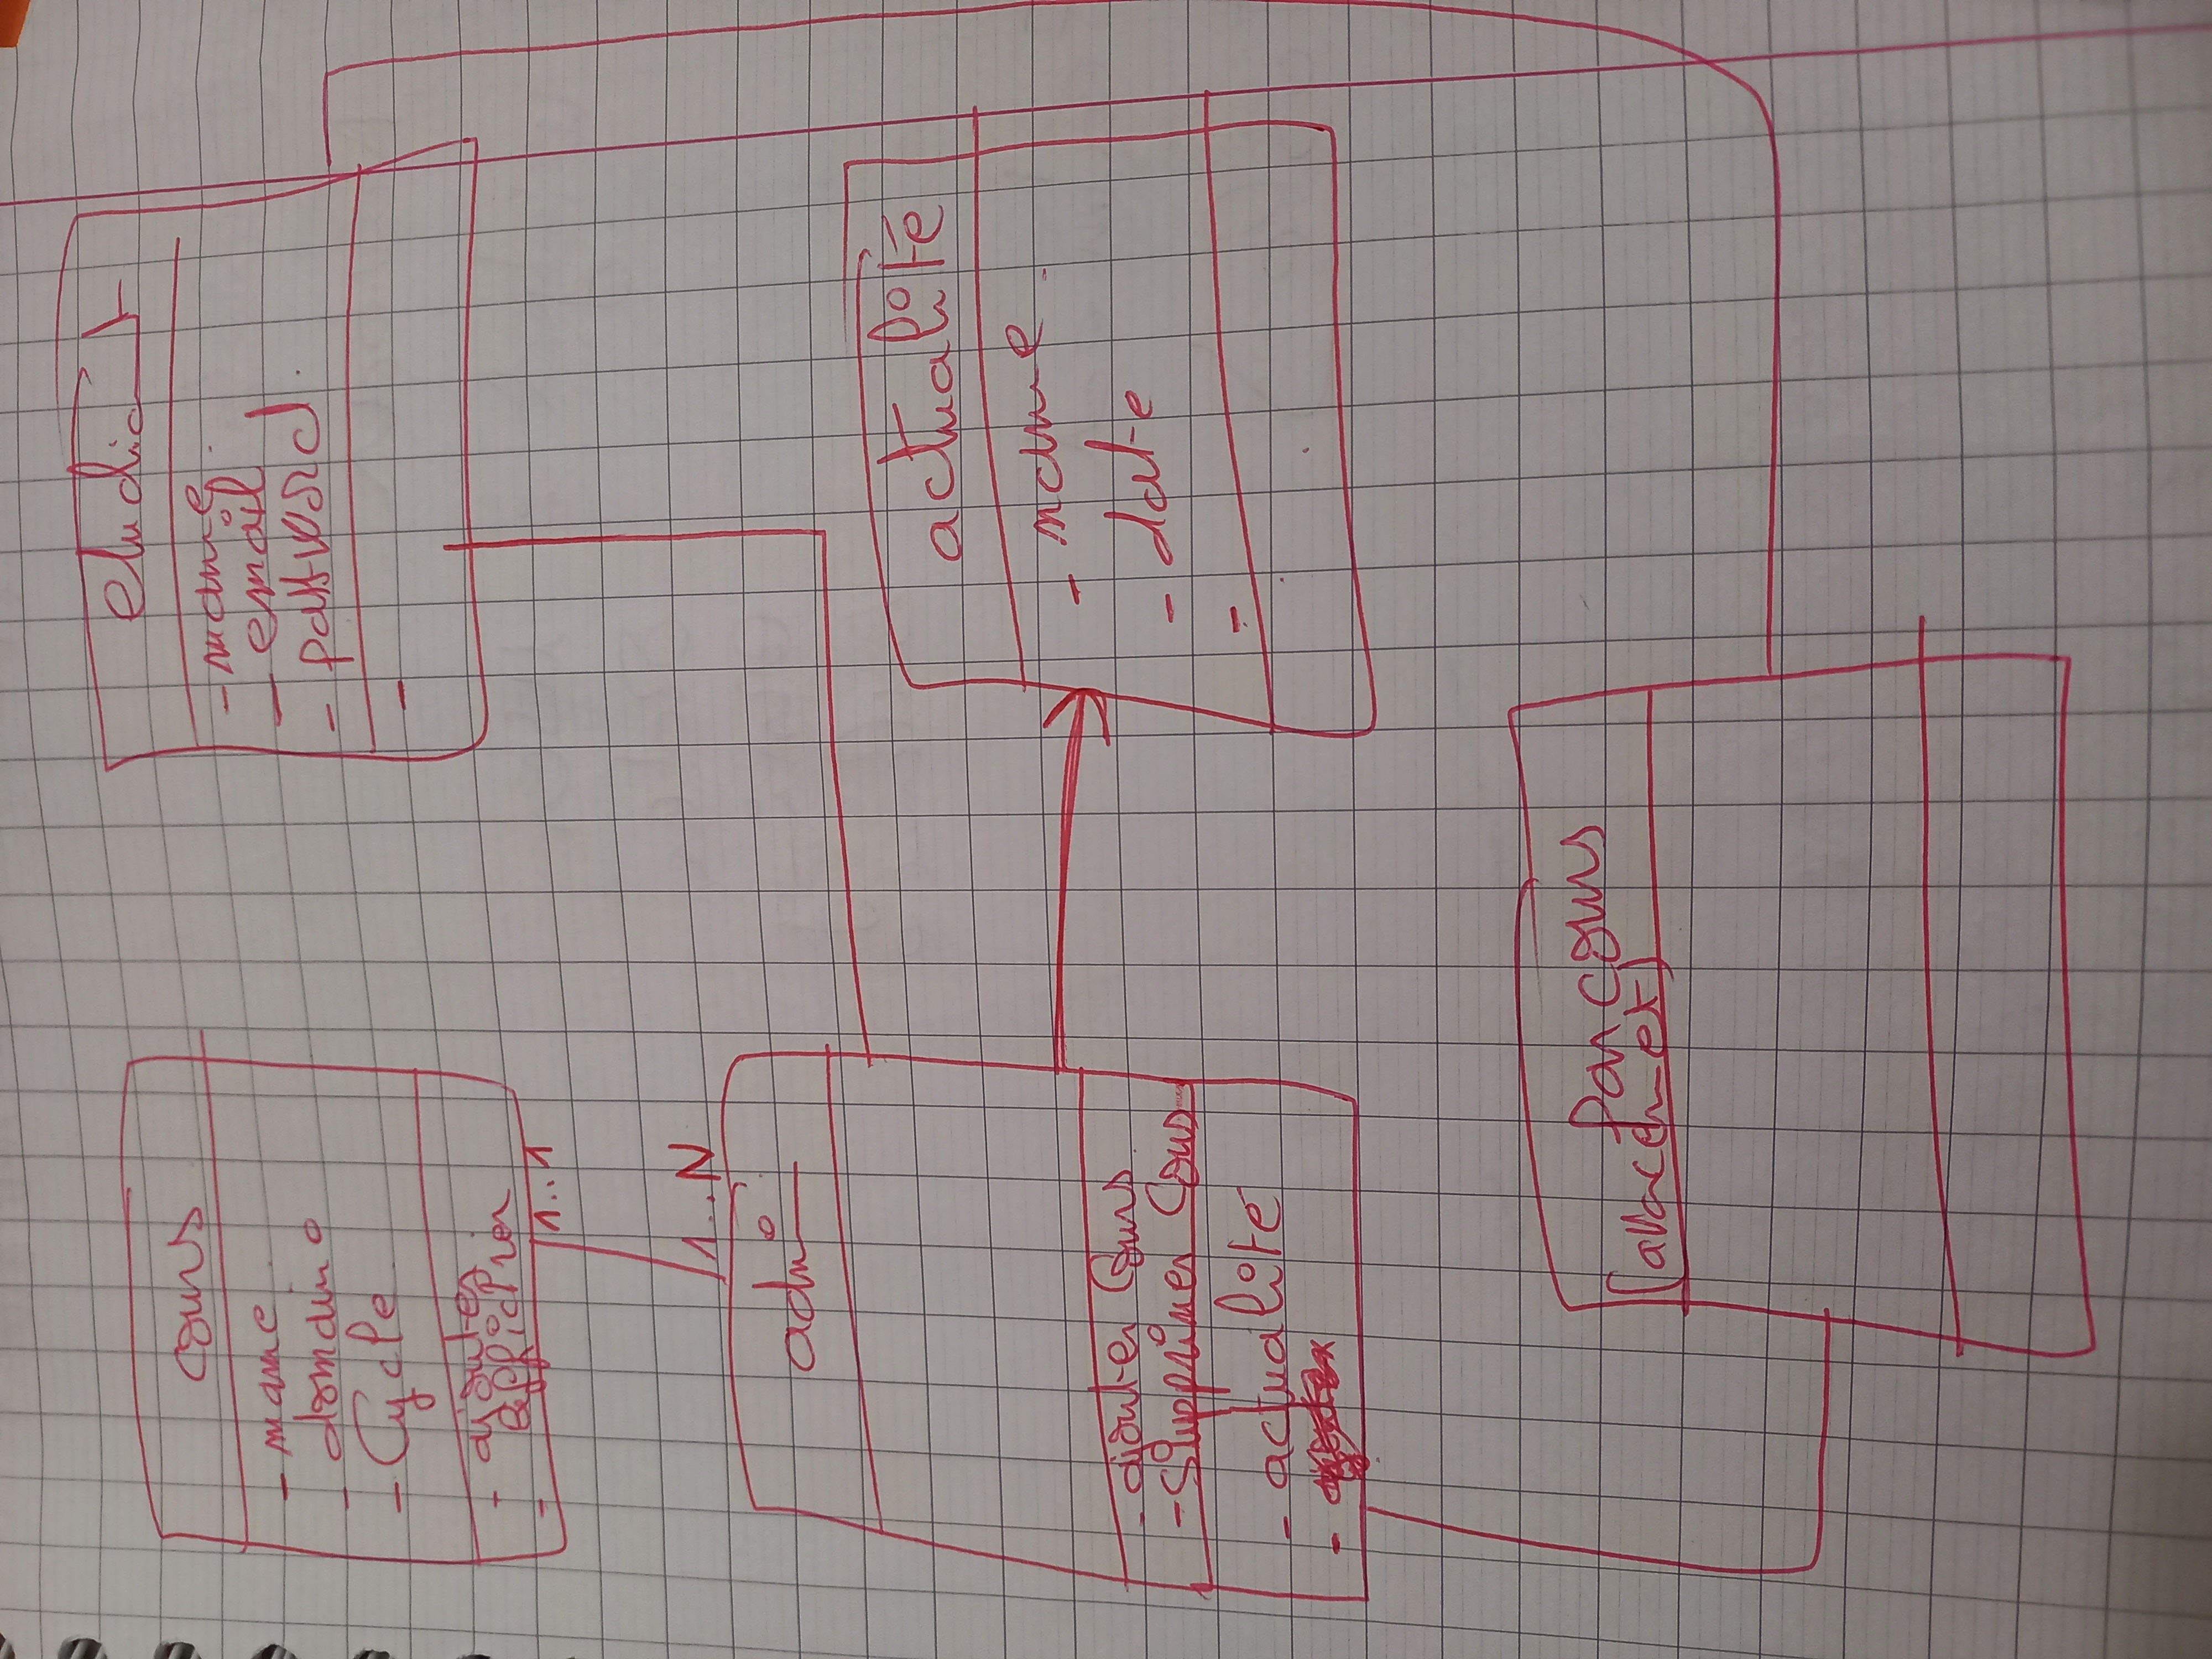 cours
- name
- domaine
- Cycle
- ajouter
- afficher
1..1
etudiant
- name
- email
- password
-
1..N
admin
- ajouter Cours
- Supprimer Cours
- actualité
-
actualité
- name
- date
-
Parcours
(avacemet)